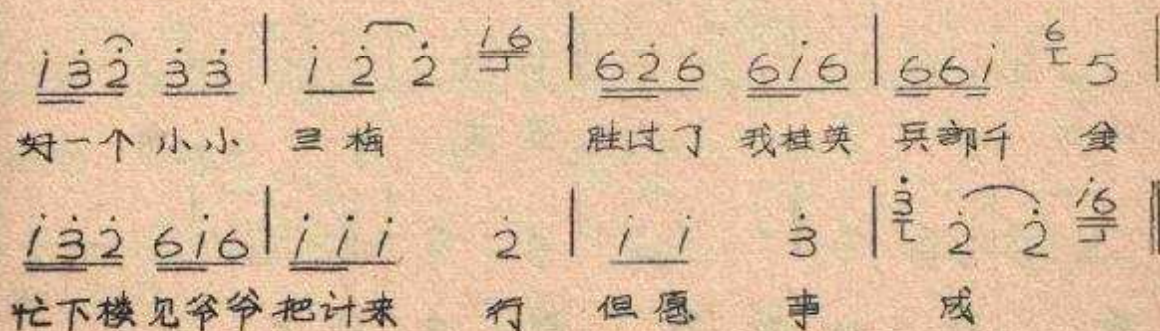 1̇3̇2̇ 3̇3̇ | 1̇ 2̇ 2̇ 1̇6 | 62̇6 61̇6 | 661̇ 6 5 |
好一个 小小 兰梅 胜过了 我桂英 兵部千 金
1̇3̇2̇ 61̇6 | 1̇1̇1̇ 2̇ | 1̇ 1̇ 3̇ | 3̇ 2̇ 2̇ 1̇6 ‖
忙下楼 见爷爷 把计来 行 但愿 事 成